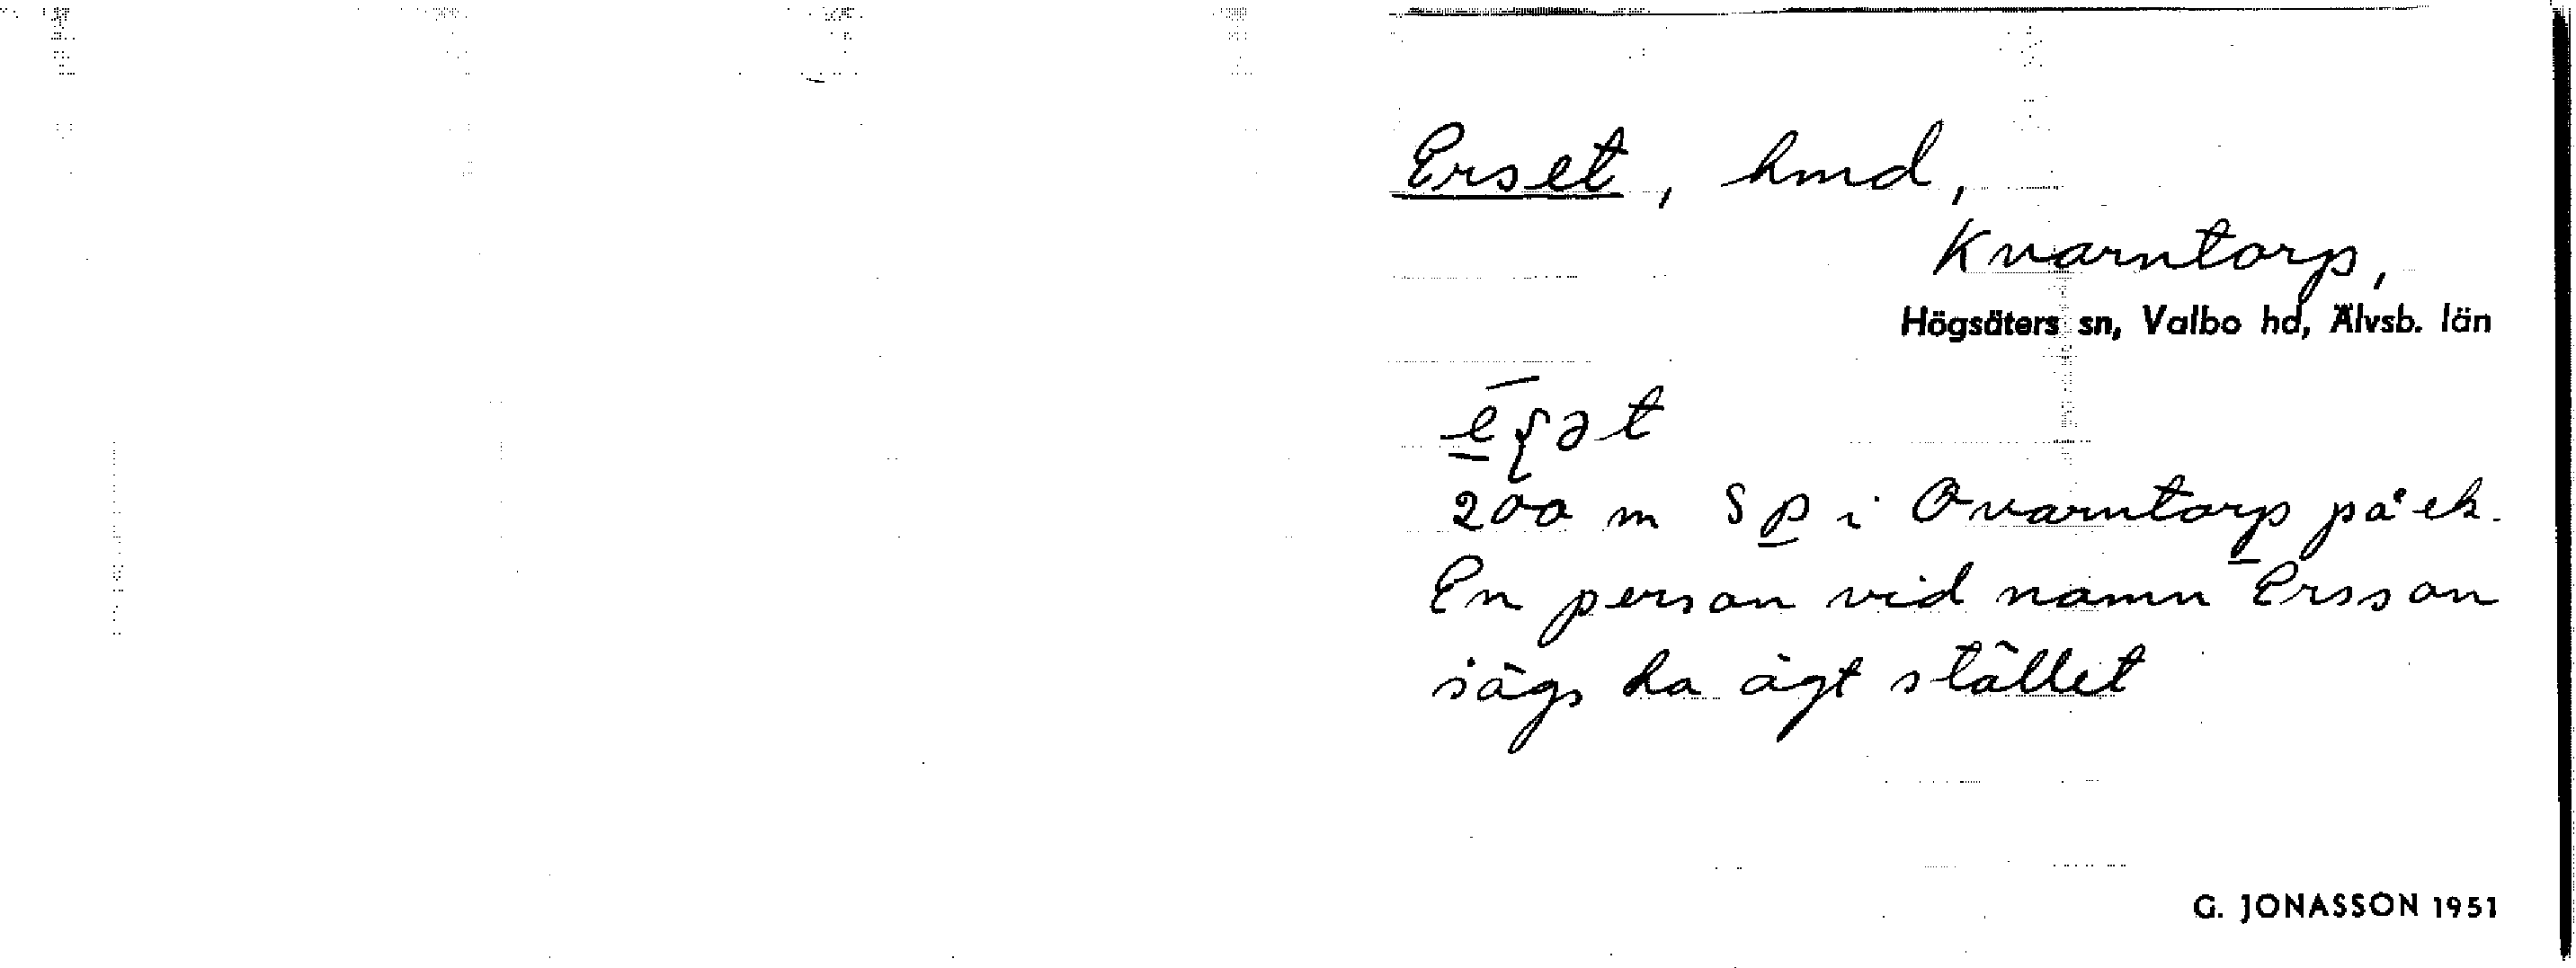 Erset, hmd,
Kvarntorp,
Högsäters sn, Valbo hd, Älvsb. län
200 m S p i Qvarntorp på ek.
En person vid namn Ersson
sägs ha ägt stället
G. JONASSON 1951